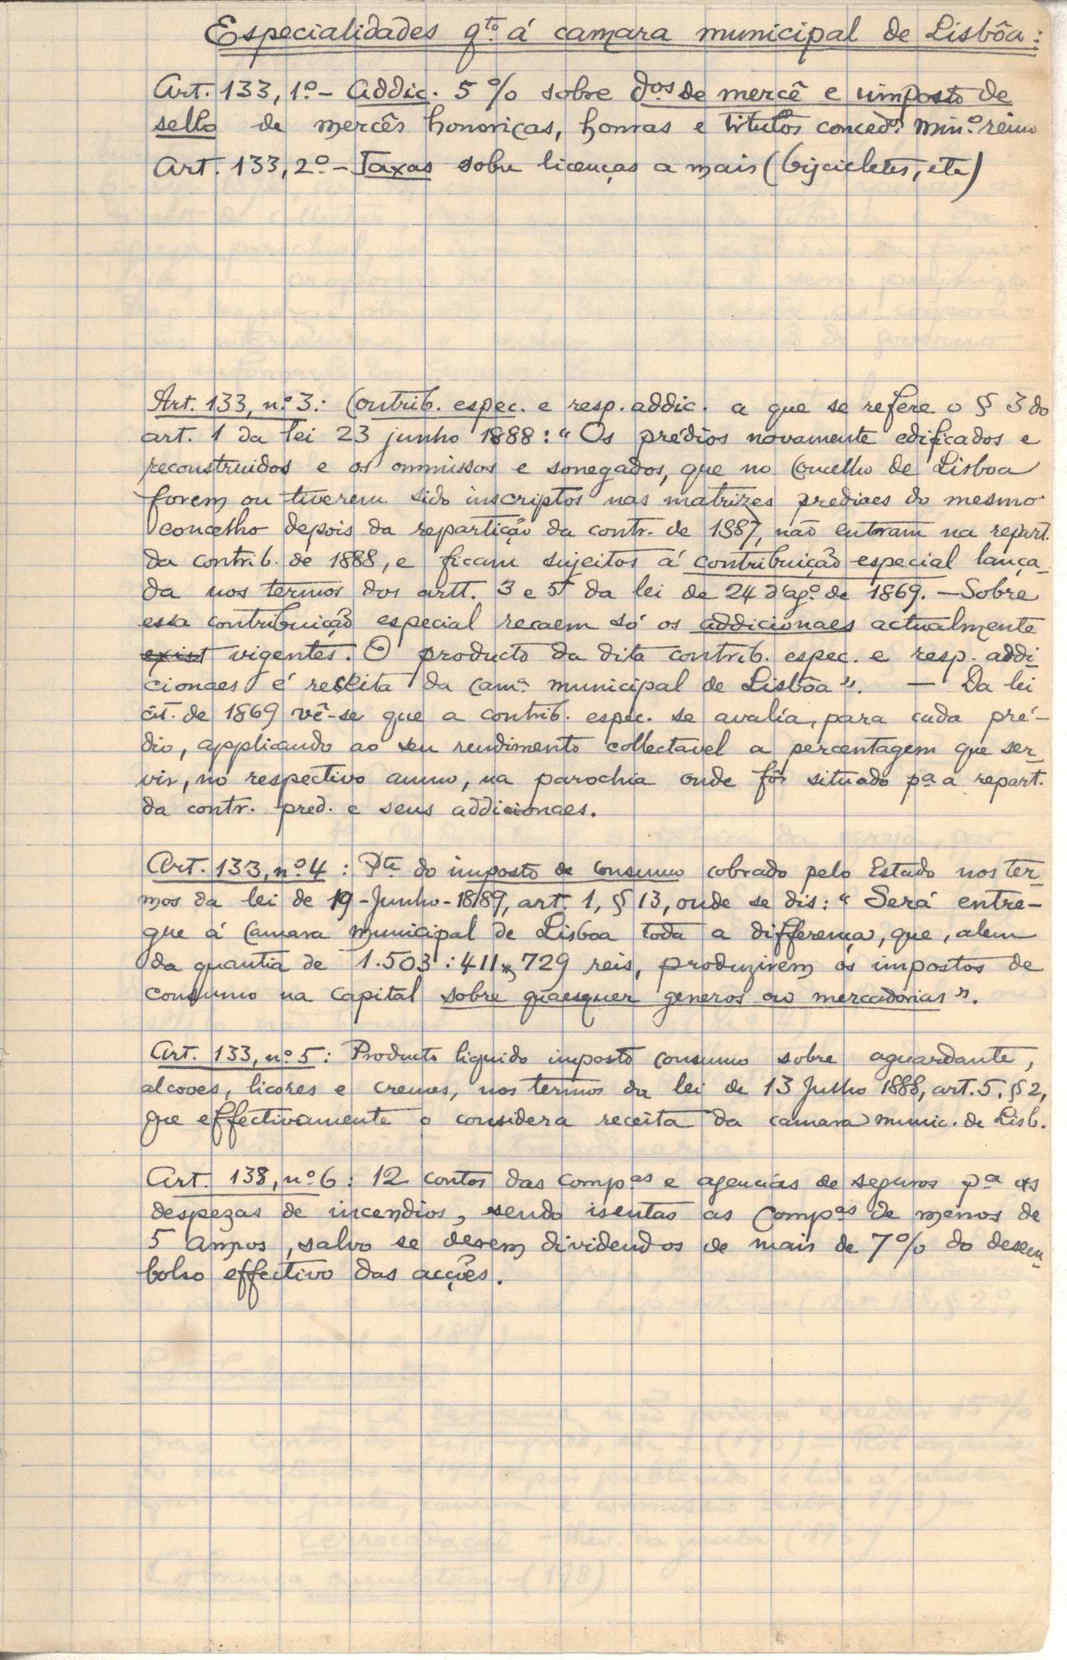 Especialidades qto á camara municipal de Lisbôa:
Art. 133, 1º - Addic. 5 % sobre dos de mercê e imposto de
sello de mercês honoricas, honras e titulos conced. Min.º reino
Art. 133, 2º - Taxas sobre licenças a mais (bijcicletes, etc)
Art. 133, nº 3: Contrib. espec. e resp. addic. a que se refere o § 3 do
art. 1 da lei 23 junho 1888: "Os prédios novamente edificados e
reconstruidos e os ommissos e sonegados, que no Concelho de Lisboa
forem ou tiverem sido inscriptos nas matrizes prediaes do mesmo
concelho depois da repartição da contr. de 1887, não entoram na repart.
da contrib. de 1888, e ficam sujeitos á contribuição especial lança-
da nos termos dos artt. 3 e 5 da lei de 24 d'agº de 1869. - Sobre
essa contribuição especial recaem só os addicionaes actualmente
exist vigentes. O producto da dita contrib. espec. e resp. addi-
cionaes é receita da camª municipal de Lisbôa". — Da lei
cit. de 1869 vê-se que a contrib. espec. se avalia, para cada pré-
dio, applicando ao seu rendimento collectavel a percentagem que ser-
vir, no respectivo anno, na parochia onde fôr situado pª a repart.
da contr. pred. e seus addicionaes.
Art. 133, nº 4: Pte do imposto de consumo cobrado pelo Estado nos ter-
mos da lei de 19-Junho-1889, art. 1, § 13, onde se dis: "Será entre-
gue á Camara Municipal de Lisboa toda a differença, que, alem
da quantia de 1.503:411$729 reis, produzirem os impostos de
consumo na capital sobre quaesquer generos ou mercadorias".
Art. 133, nº 5: Producto liquido imposto consumo sobre aguardante,
alcooes, licores e cremes, nos termos da lei de 13 Julho 1888, art. 5, § 2,
que effectivamente o considera receita da camara munic. de Lisb.
Art. 133, nº 6: 12 contos das compas e agencias de seguros pª as
despezas de incendios, sendo isentas as Compas de menos de
5 annos, salvo se derem dividendos de mais de 7% do desem-
bolso effectivo das acções.